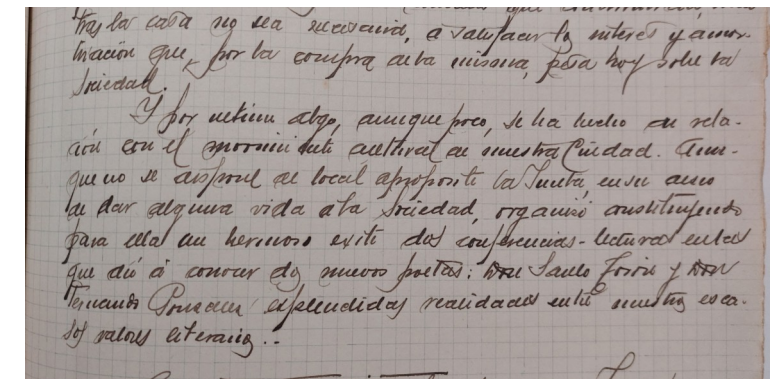 tras la casa no sea necesario, a satisfacer la interés y amor-
tización que, por la compra de la misma, pesa hoy sobre la
Sociedad.
Y por último algo, aunque poco, se ha hecho en rela-
ción con el movimiento cultural de nuestra Ciudad. Aun-
que no se dispone de local aproposito la Junta, en su deseo
de dar alguna vida a la Sociedad, organizó constituyendo
para ella un hermoso exito dos conferencias-lecturas en las
que dió á conocer dos nuevos poetas: Don Saulo Torón y Don
Fernando González esplendidas realidades entre nuestros esca-
sos valores literarios..